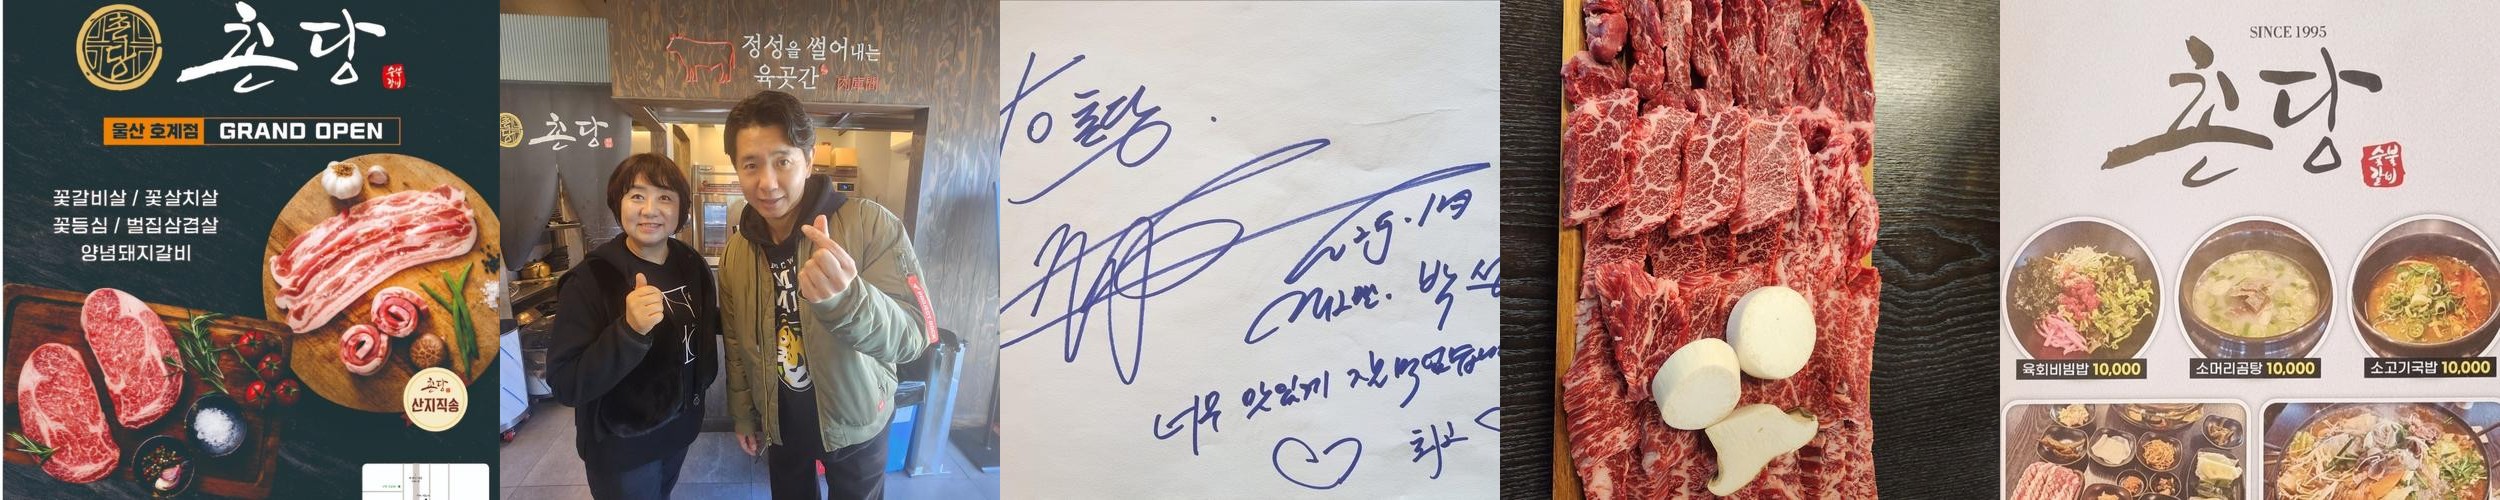 촌당
촌당
숯부
갈비
울산 호계점 GRAND OPEN
꽃갈비살 / 꽃살치살
꽃등심 / 벌집삼겹살
양념돼지갈비
촌당
산지직송
정성을 썰어내는
육곳간
肉庫間
촌당
to 촌당.
너무 맛있게 잘 먹었습니
최고
SINCE 1995
촌당
숯부
갈비
육회비빔밥 10,000
소머리곰탕 10,000
소고기국밥 10,000